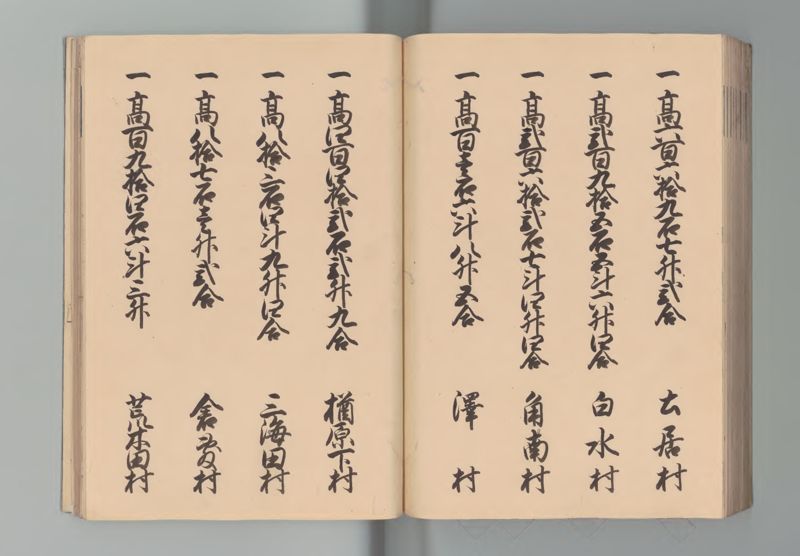 一 髙六百六拾九石七升弐合 土居村
一 髙弐百九拾五石五斗六升四合 白水村
一 髙弐百六拾弐石七斗四升四合 角南村
一 髙百壱石六斗八升五合 澤村
一 髙四百四拾弐石弐升九合 楢原下村
一 髙八拾三石四斗九升四合 三海田村
一 髙八拾七石壱升弐合 倉敷村
一 髙百九拾四石六斗三升 荒木田村